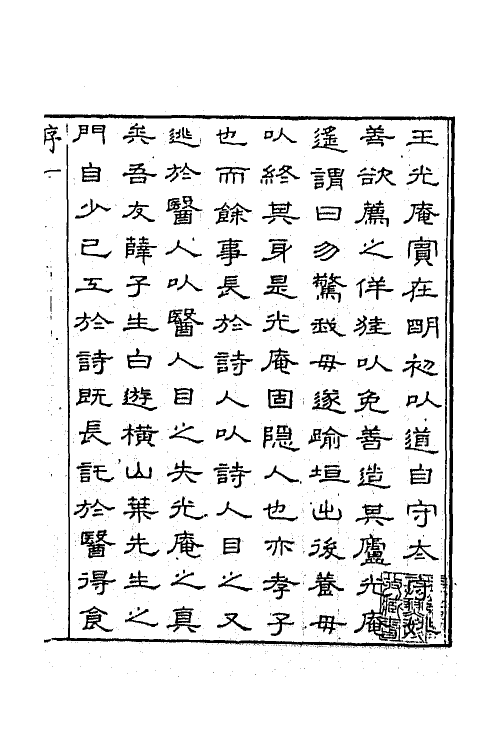 王光庵賓在明初以道自守太守姚
善欲薦之佯狂以免善造其廬光庵
遙謂曰勿驚我母遂踰垣出後養母
以終其身是光庵固隱人也亦孝子
也而餘事長於詩人以詩人目之又
逃於醫人以醫人目之失光庵之真
矣吾友薛子生白遊橫山葉先生之
門自少已工於詩既長託於醫得食
序一